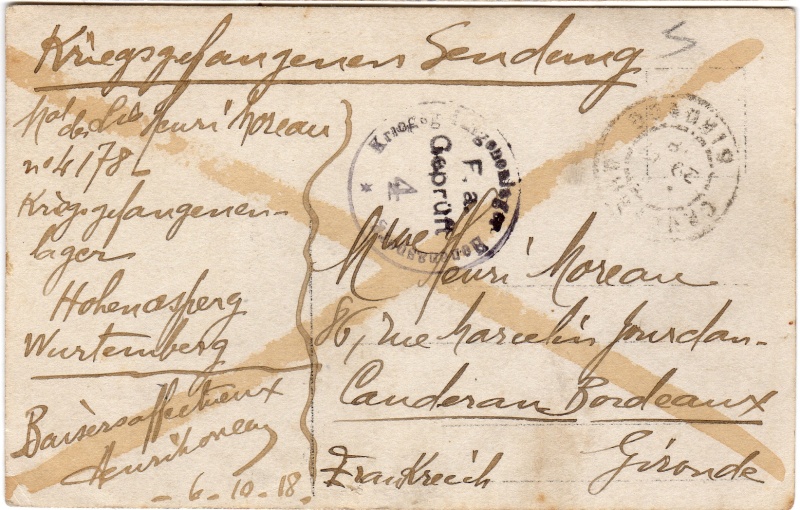 Kriegsgefangenen Sendung
Mal des Lis Henri Moreau
nº 4178
Kriegsgefangenen-
lager
Hohenasperg
Wurtemberg
Baisers affectueux
Henri Moreau
- 6 - 10 - 18 -
Kriegsgefangenenlager
F. a.
Geprüft
4
Hohenasperg
CAUDERAN
GIRONDE
Mme Henri Moreau
86, rue Marcelin Jourdan -
Caudéran Bordeaux
Gironde
Frankreich